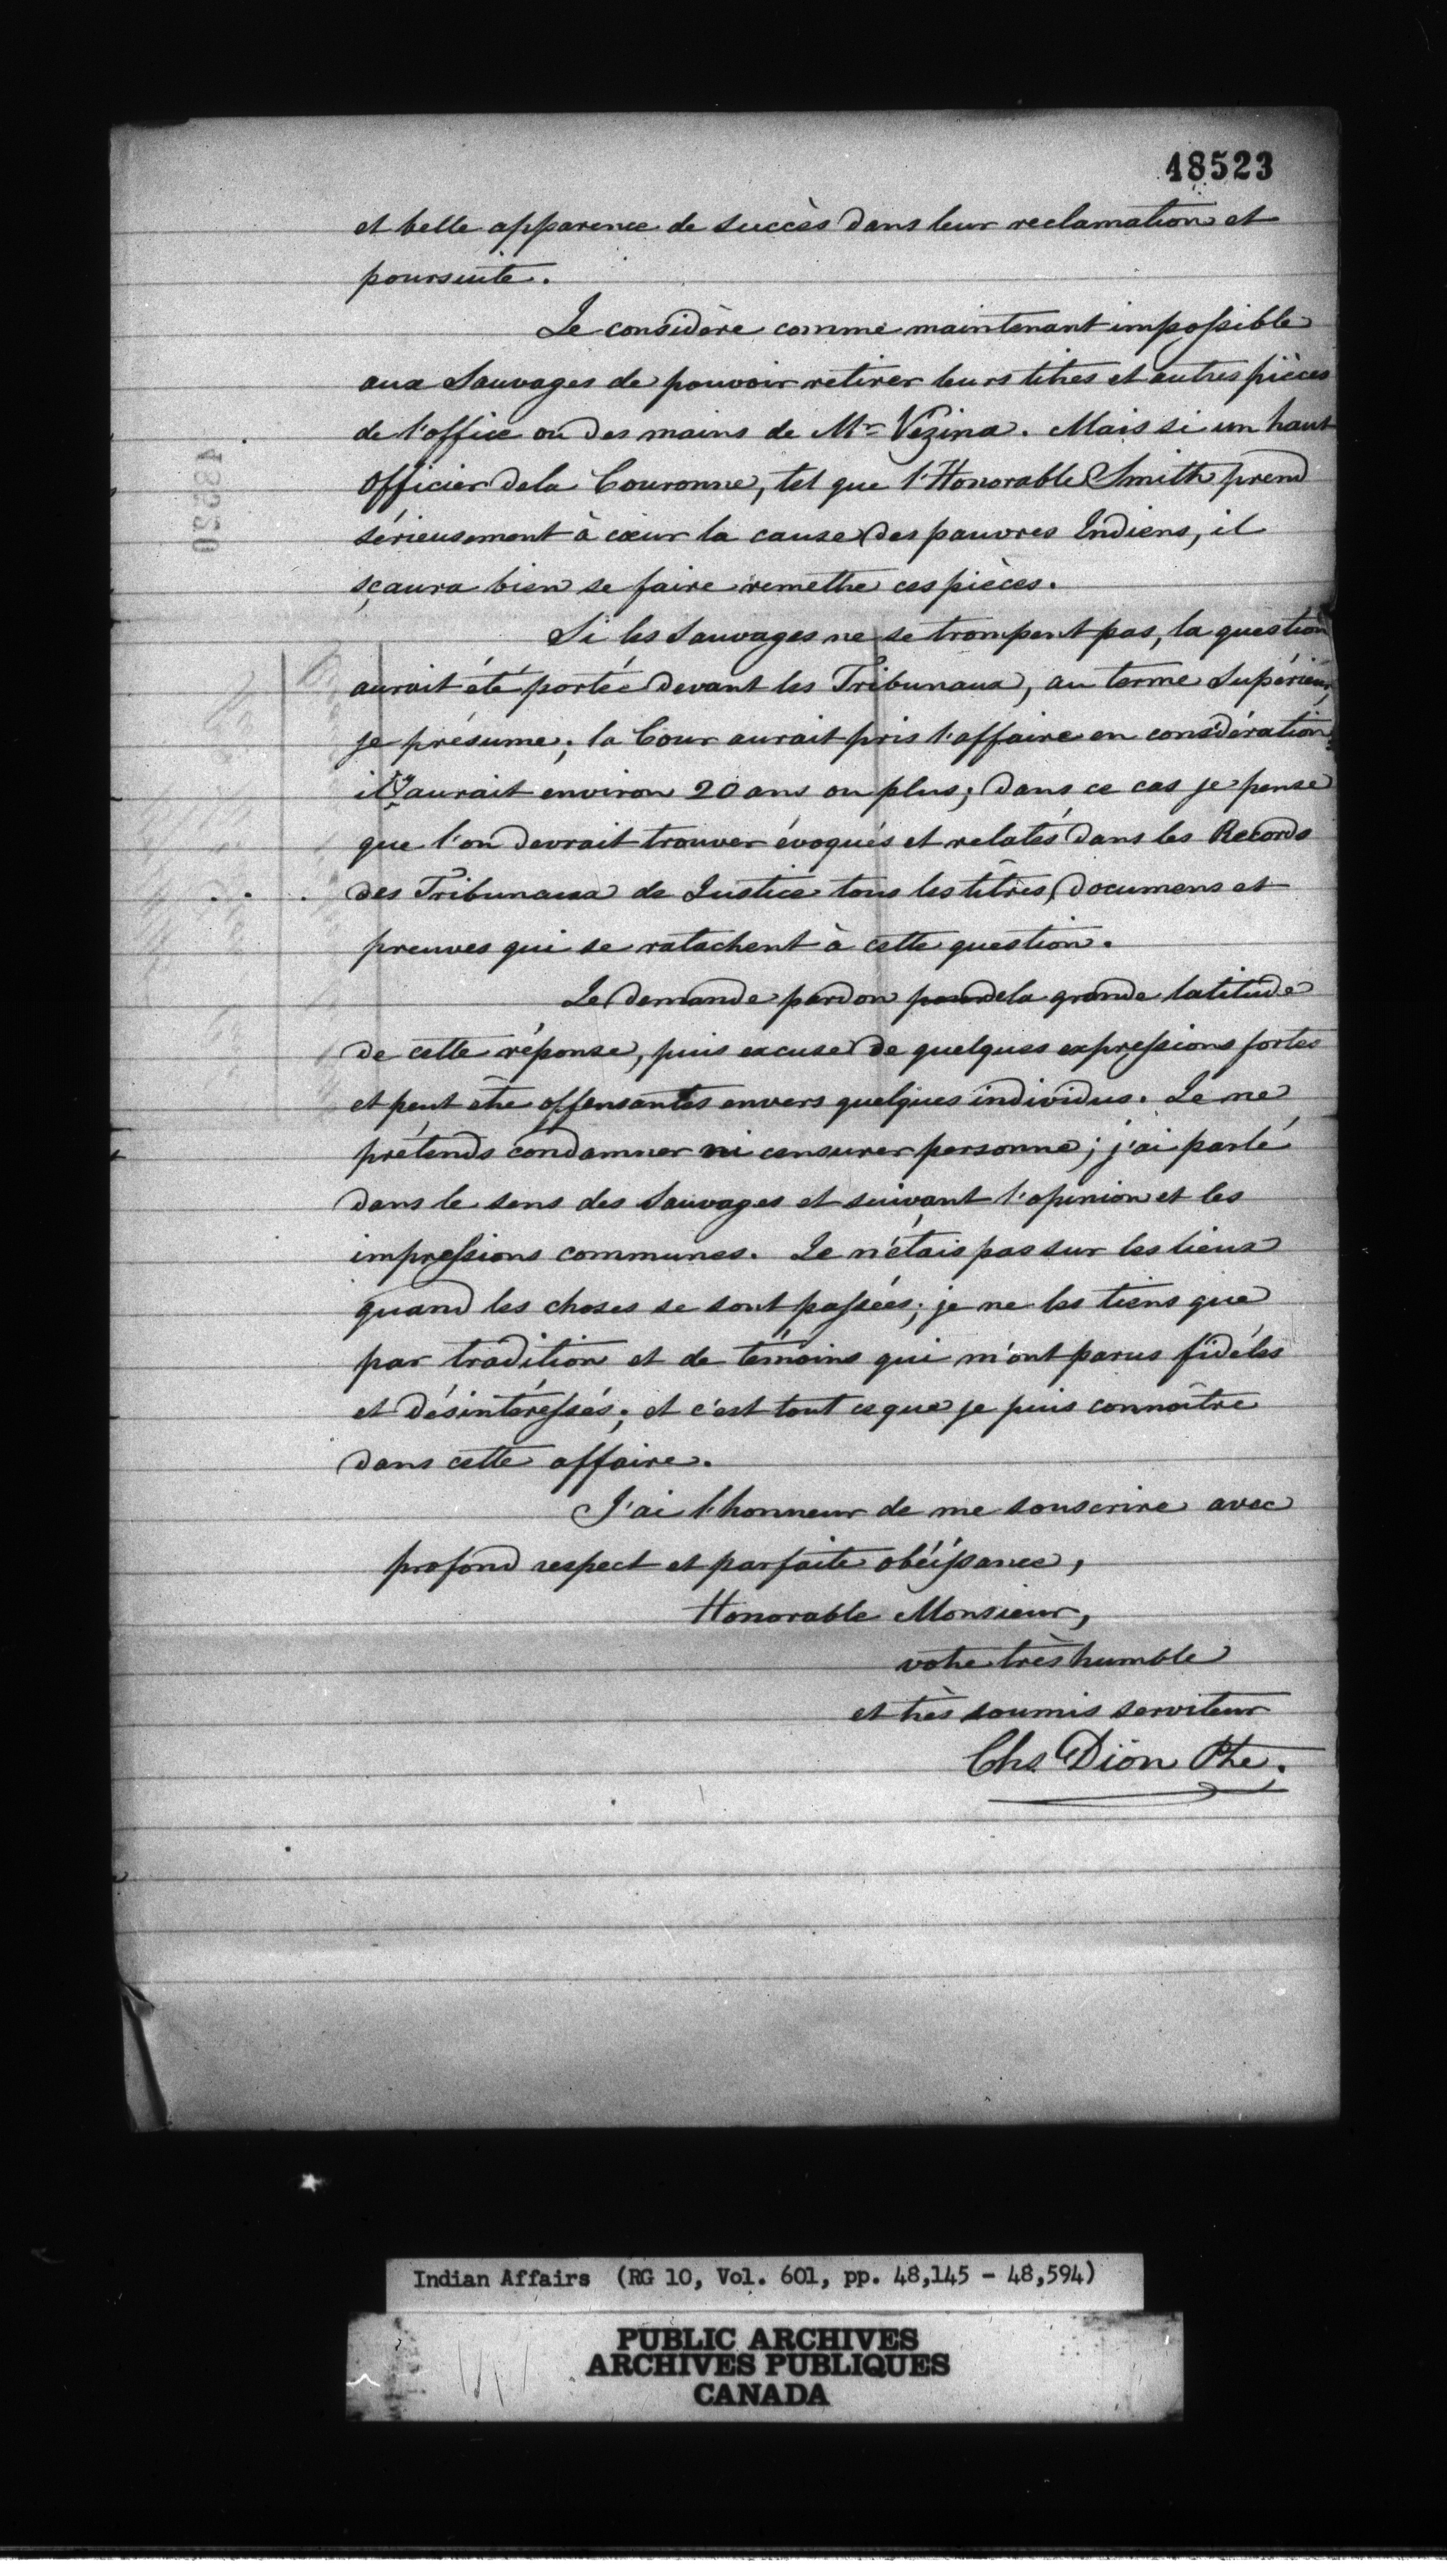 48523
et belle apparence de succès dans leur reclamation et
poursuite.
Je considère comme maintenant impossible
aux Sauvages de pouvoir retirer leurs titres et autres pièces
de l'office ou des mains de Mr Vézina. Mais si un haut
Officier de la Couronne, tel que l'Honorable Smith prend
sérieusement à cœur la cause des pauvres Indiens, il
sçaura bien se faire remettre ces pièces.
Si les Sauvages ne se trompent pas, la question
aurait été portée devant les Tribunaux, au terme Supérieur,
je présume; la Cour aurait pris l'affaire en considération
il y aurait environ 20 ans ou plus; dans ce cas je pense
que l'on devrait trouver évoqués et relatés dans les Records
des Tribunaux de Justice tous les titres, documens et
preuves qui se ratachent à cette question.
Je demande pardon pour de la grande latitude
de cette réponse, puis excuse de quelques expressions fortes
et peut être offensantes envers quelques individus. Je ne
prétends condamner ni censurer personne; j'ai parlé
dans le sens des Sauvages et suivant l'opinion et les
impressions communes. Je n'étais pas sur les lieux
quand les choses se sont passées; je ne les tiens que
par tradition et de témoins qui m'ont parus fidéles
et désintéressés; et c'est tout ce que je puis connoître
dans cette affaire.
J'ai l'honneur de me souscrire avec
profond respect et parfaite obéissance,
Honorable Monsieur,
votre très humble
et très soumis serviteur
Chs. Dion Ptre.
Indian Affairs (RG 10, Vol. 601, pp. 48,145 - 48,594)
PUBLIC ARCHIVES
ARCHIVES PUBLIQUES
CANADA